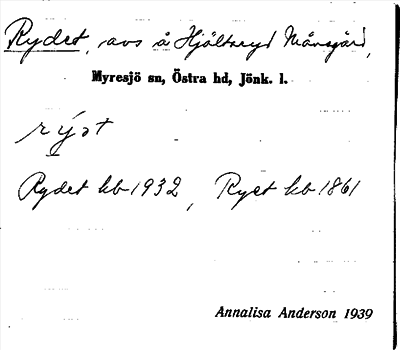 Rydet, avs å Hjältseryd Månsgård,
Myresjö sn, Östra hd, Jönk. l.
rýət
Rydet kb 1932, Ryet kb 1861
Annalisa Anderson 1939